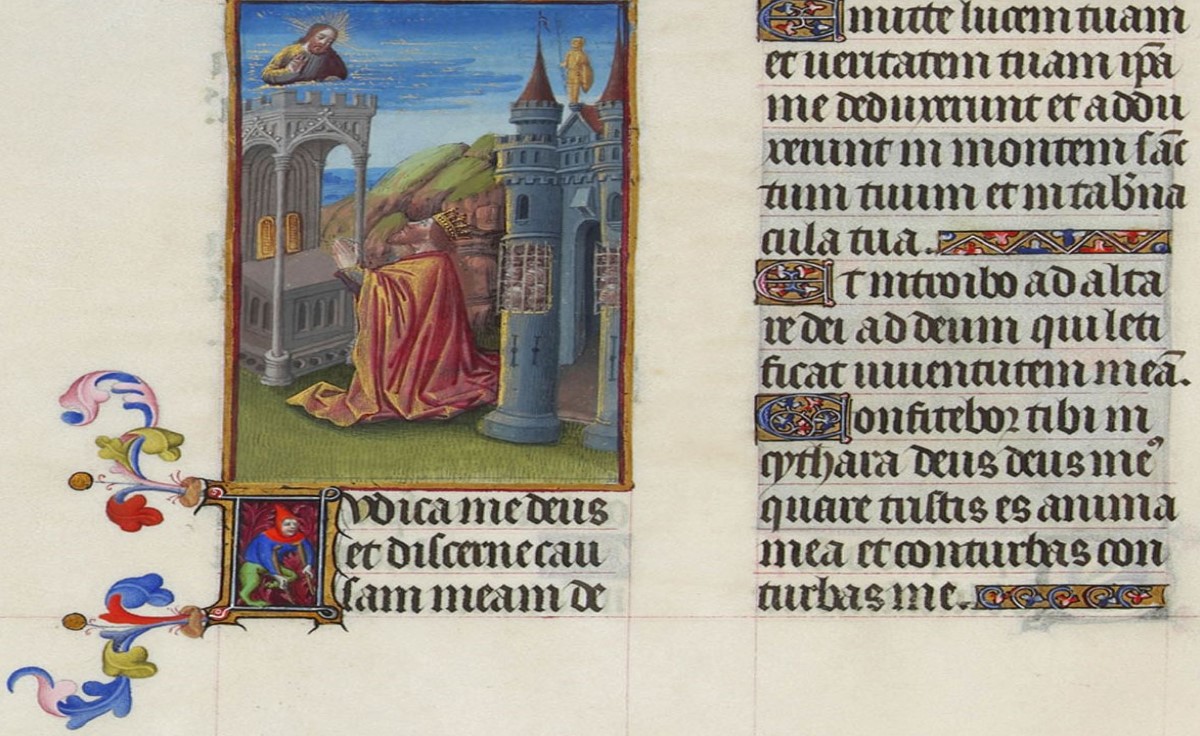 Iudica me deus
et discerne cau
sam meam de
Emitte lucem tuam
et ueritatem tuam ip̄a
me deduxerunt et addu
xerunt in montem sāc
tum tuum et in tab̄na
cula tua.
Et introibo ad alta
re dei ad deum qui leti
ficat iuuentutem meā.
Confitebor tibi in
cythara deus deus meꝰ
quare tristis es anima
mea et conturbas con
turbas me.